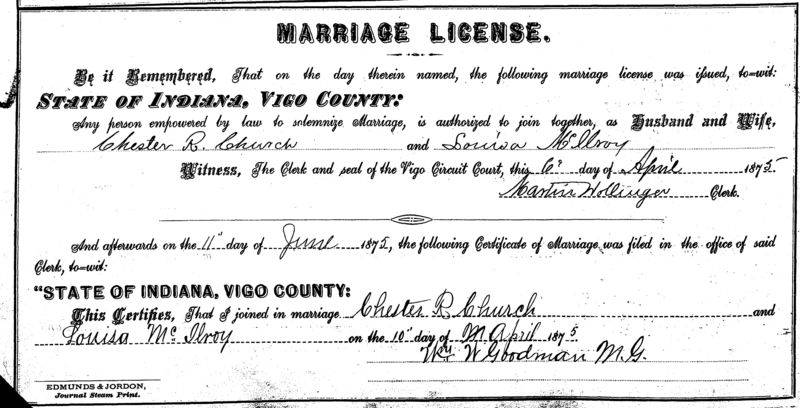 MARRIAGE LICENSE.
Be it Remembered, That on the day therein named, the following marriage license was issued, to=wit:
STATE OF INDIANA, VIGO COUNTY:
Any person empowered by law to solemnize Marriage, is authorized to join together, as Husband and Wife,
Chester R. Church and Louisa McIlroy
Witness, The Clerk and seal of the Vigo Circuit Court, this 6" day of April 1875
Martin Hollinger Clerk.
And afterwards on the 11" day of June 1875, the following Certificate of Marriage was filed in the office of said
Clerk, to=wit:
"STATE OF INDIANA, VIGO COUNTY:
This Certifies, That I joined in marriage Chester R Church and
Louisa Mc Ilroy on the 10" day of April 1875
W Goodman M.G.
EDMUNDS & JORDON,
Journal Steam Print.